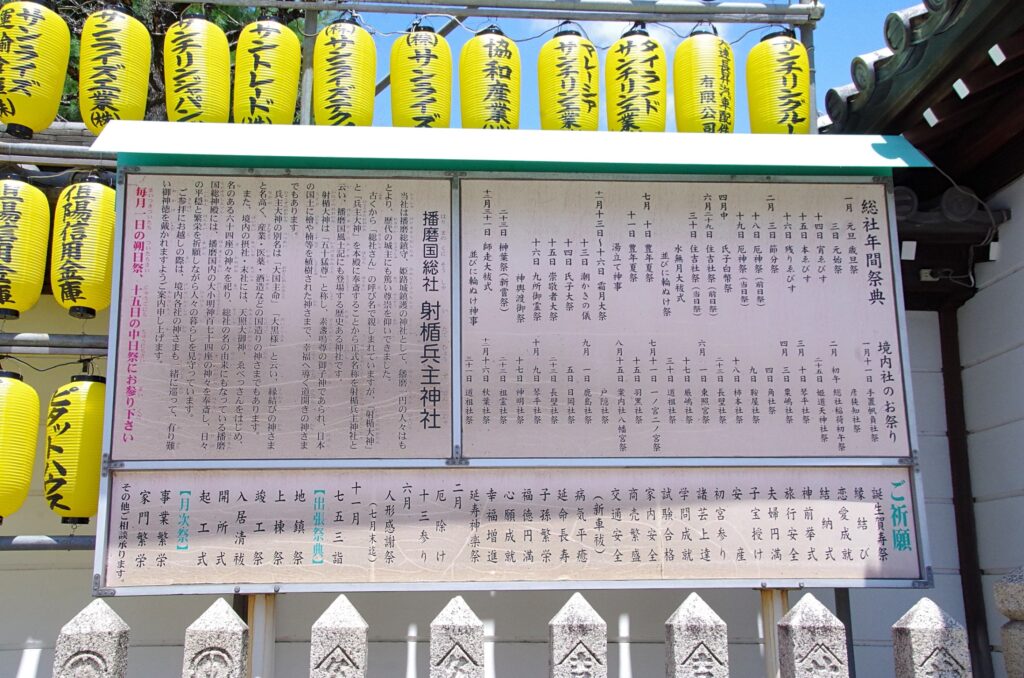 サンライズ
サンライズ工業㈱
サンチリンジャパン
サントレード㈱
㈱サンライズテク
㈱サンライズ
協和産業㈱
マレーシア
サンチリン工業
タイランド
サンチリン工業
有限公司
サンチリングルー
但陽信用金庫
但陽信用金庫
ピタットハウス
総社年間祭典
一月
元旦 歳旦祭
三日 元始祭
十四日 宵ゑびす
十五日 本ゑびす
十六日 残りゑびす
二月
三日 節分祭
十八日 厄神祭(前日祭)
十九日 厄神祭(当日祭)
四月中
氏子白幣祭
六月二十九日 住吉社祭(前日祭)
三十日 住吉社祭(当日祭)
水無月大祓式
並びに輪ぬけ祭
七月
十日 豊年夏祭
十一日 豊年夏祭
湯立て神事
十一月十三日〜十六日 霜月大祭
十三日 潮かきの儀
十四日 氏子大祭
十五日 崇敬者大祭
十六日 九所御霊祭
神輿渡御祭
二十三日 新嘗祭
十二月三十一日 師走大祓式
並びに輪ぬけ神事
境内社のお祭り
一月十一日 手置帆負社祭
彦狭知社祭
二月
初午 総社稲荷初午祭
二十五日 姫道天神社祭
三月
十日 琴平社祭
四月
三日 粟嶋社祭
四日 角社祭
九日 鞍屋社祭
十八日 柿本社祭
二十三日 長壁社祭
六月
一日 東照宮祭
十七日 厳嶋社祭
七月十一日 一ノ宮二ノ宮祭
十五日 羽黒社祭
八月十五日 案内社八幡宮祭
九月
一日 鹿島社祭
戸隠社祭
五日 日岡社祭
十月
九日 琴平社祭
二十三日 長壁社祭
十二月
十七日 神明社祭
十六日 秋葉社祭
二十三日 祖霊社祭
二十一日 道祖社祭
播磨国総社 射楯兵主神社
当社は播磨総鎮守、姫路城鎮護の神社として、播磨一円の人々はもとより、歴代の城主にも篤い尊崇を仰いできました。
古くから「総社さん」の呼び名で親しまれていますが、「射楯大神」と「兵主大神」を本殿に奉斎することから正式名称を射楯兵主神社と云い、播磨国風土記にも登場する歴史ある神社です。
射楯大神は「五十猛尊」と称し、素盞嗚尊の御子神であられ、日本の国土に檜や楠等を植樹された神さまで、幸福へ導く道開きの神さまでもあります。
兵主大神の別名は「大国主命」「大黒様」と云い、縁結びの神さまと名高く、産業・医薬・酒造などの国造りの神さまでもあります。
また、境内の摂社・末社には、天照大御神、ゑべっさんをはじめ、名のある六十四座の神々を祀り、総社の名の由来にもなっている播磨国総神殿には、播磨国内の大小明神百七十四座の神々を奉斎し、日々の平穏と繁栄を祈願しながら人々の暮らしを見守っています。
ご参拝にお越しの際は、境内各社の神さまも一緒に巡って、有り難い御神徳を戴かれますようご案内申し上げます。
毎月一日の朔日祭、十五日の中日祭にお参り下さい
ご祈願
誕生賀寿祭
縁結び
恋愛成就
結納式
神前挙式
旅行安全
夫婦円満
子宝授け
安産
初宮参り
諸芸上達
学問成就
試験合格
家内安全
商売繁盛
交通安全
(新車祓)
病気平癒
延命長寿
子孫繁栄
福徳円満
心願成就
幸福増進
延寿神楽祭
二月
厄除け
十三参り
六月
(七月末迄)
人形感謝祭
十一月
七五三詣
【出張祭典】
地鎮祭
上棟祭
竣工祭
入居清祓
開所式
起工式
【月次祭】
事業繁栄
家門繁栄
その他ご相談承ります。